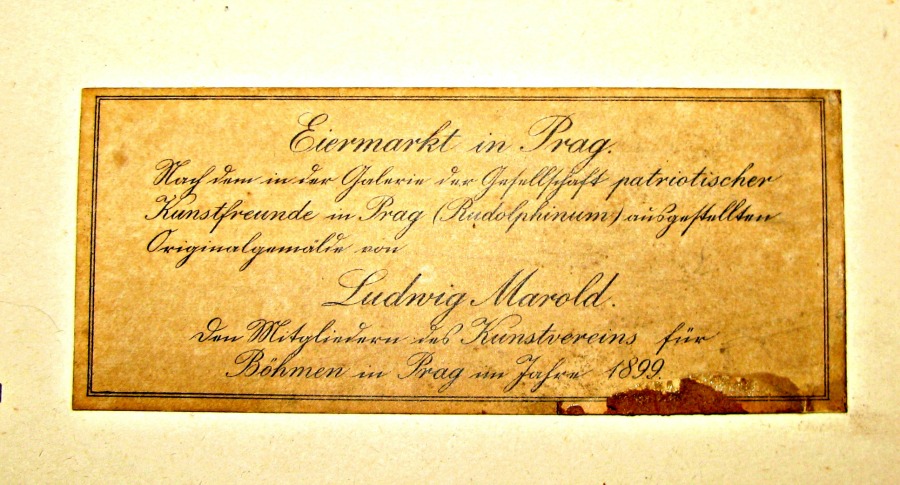 Eiermarkt in Prag.
Nach dem in der Galerie der Gesellschaft patriotischer
Kunstfreunde in Prag (Rudolphinum) ausgestellten
Originalgemälde von
Ludwig Marold.
Den Mitgliedern des Kunstvereins für
Böhmen in Prag im Jahre 1899